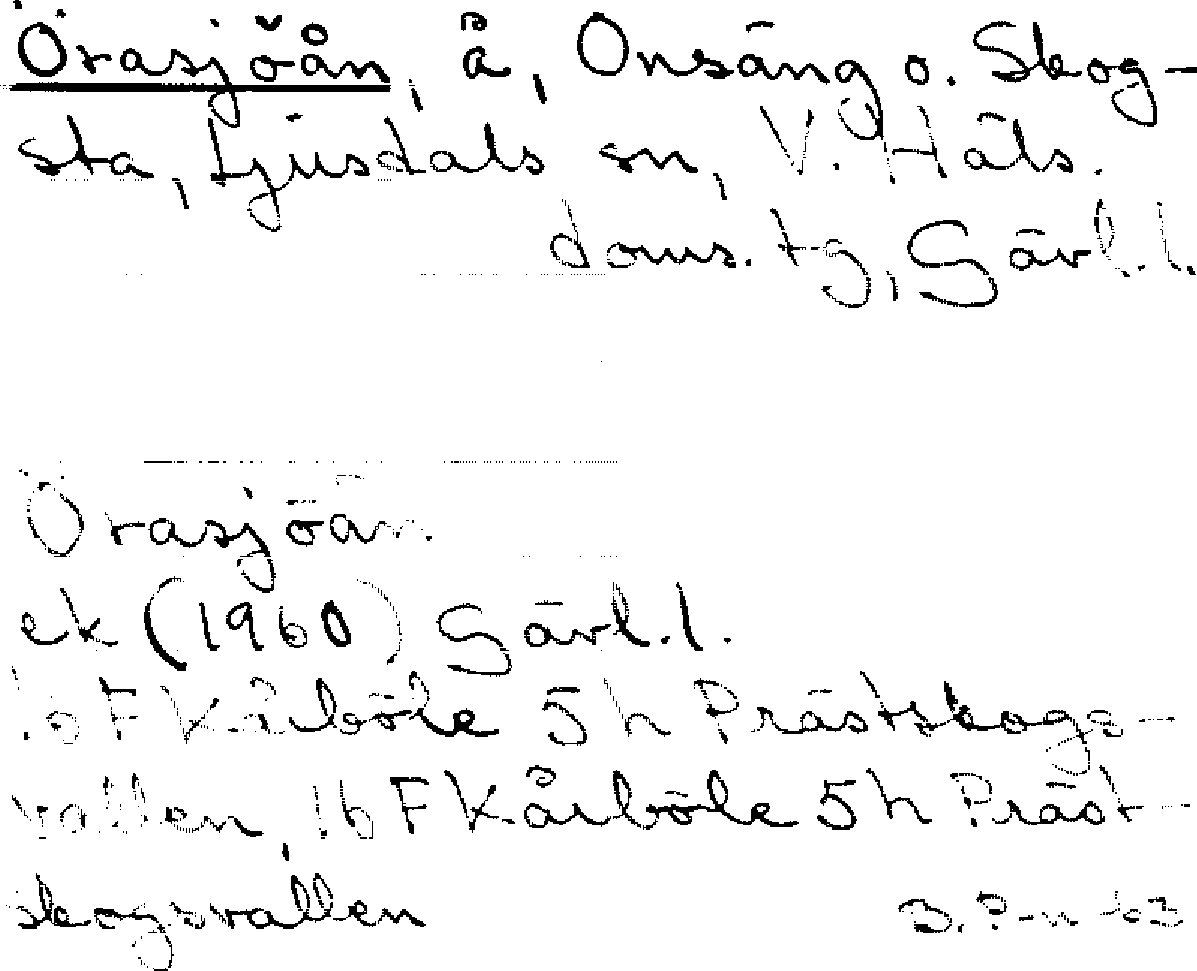 Örasjöån, å, Onsäng o. Skog-
sta, Ljusdals sn, V. Häls.
doms. tg, Gävl. l.
Örasjöån
ek (1960) Gävl. l.
16 F Kårböle 5 h Prästskogs-
vallen, 16 F Kårböle 5 h Präst-
skogsvallen